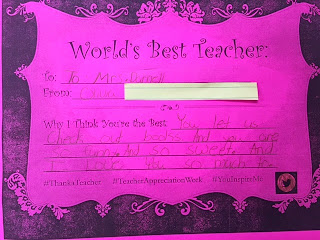 World's Best Teacher:
To: To Mrs.
From:
Why I Think You're the Best: You let us
check out books And you are
so funny And so sweet. And
I Love you so much
#ThankaTeacher #TeacherAppreciationWeek #YouInspireMe